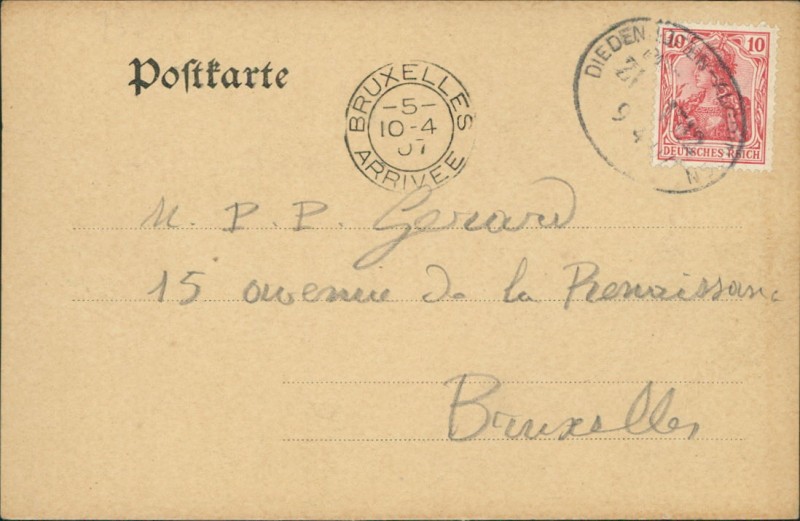 Postkarte
BRUXELLES
-5-
10-4
07
ARRIVEE
DIEDEN
9 4
10 10
DEUTSCHES REICH
M. P. P. Gerard
15 avenue de la Renaissanc
Bruxelles